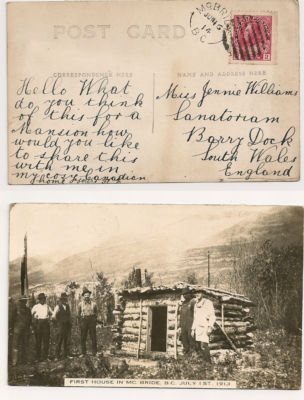 POST CARD
CORRESPONDENCE HERE
NAME AND ADDRESS HERE
Hello What
do you think
of this for a
Mansion how
would you like
to share this
with me in
my cosy Canadian
home
Miss Jennie Williams
Sanatorium
Barry Dock
South Wales
England
B.C.
2
FIRST HOUSE IN MC. BRIDE, B.C. JULY 1ST, 1913